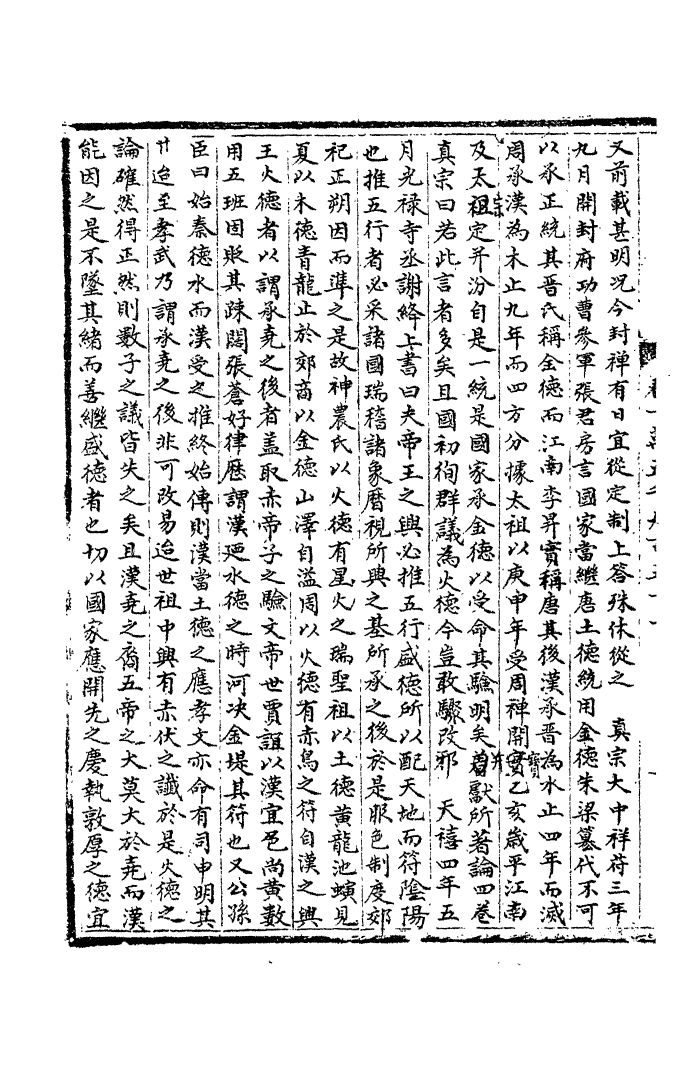 又前載甚明况今封禪有日宜從定制上答殊休從之　真宗大中祥符三年
九月開封府功曹參軍張君房言國家當繼唐土德統用金德朱梁篡代不可
以承正統其晋氏稱金德而江南李昇實稱唐其後漢承晋為水止四年而滅
周承漢為木止九年而四方分據太祖以庚申年受周禪開寶乙亥歲平江南
及太宗定并汾自是一統是國家承金德以受命其驗明矣獻所著論四卷
真宗曰若此言者多矣且國初徇群議為火德今豈敢驟改邪　天禧四年五
月光禄寺丞謝絳上書曰夫帝王之興必推五行盛德所以配天地而符隂陽
也推五行者必采諸國瑞稽諸象曆視所興之基所承之後於是服色制度郊
祀正朔因而準之是故神農氏以火德有星火之瑞聖祖以土德黄龍池螾見
夏以木徳青龍止於郊商以金德山澤自溢周以火德有赤鳥之符自漢之興
王火德者以謂承堯之後者盖取赤帝子之驗文帝世賈誼以漢宜色尚黄數
用五班固貶其踈闊張蒼好律歷謂漢廼水德之時河决金堤其符也又公孫
臣曰始秦德水而漢受之推終始傳則漢當土德之應孝文亦命有司申明其
廿迨至孝武乃謂承堯之後非可改易迨世祖中興有赤伏之讖於是火德之
論確然得正然則數子之議皆失之矣且漢堯之裔五帝之大莫大於堯而漢
能因之是不墜其緒而善繼盛徳者也切以國家應開先之慶執敦厚之德宜